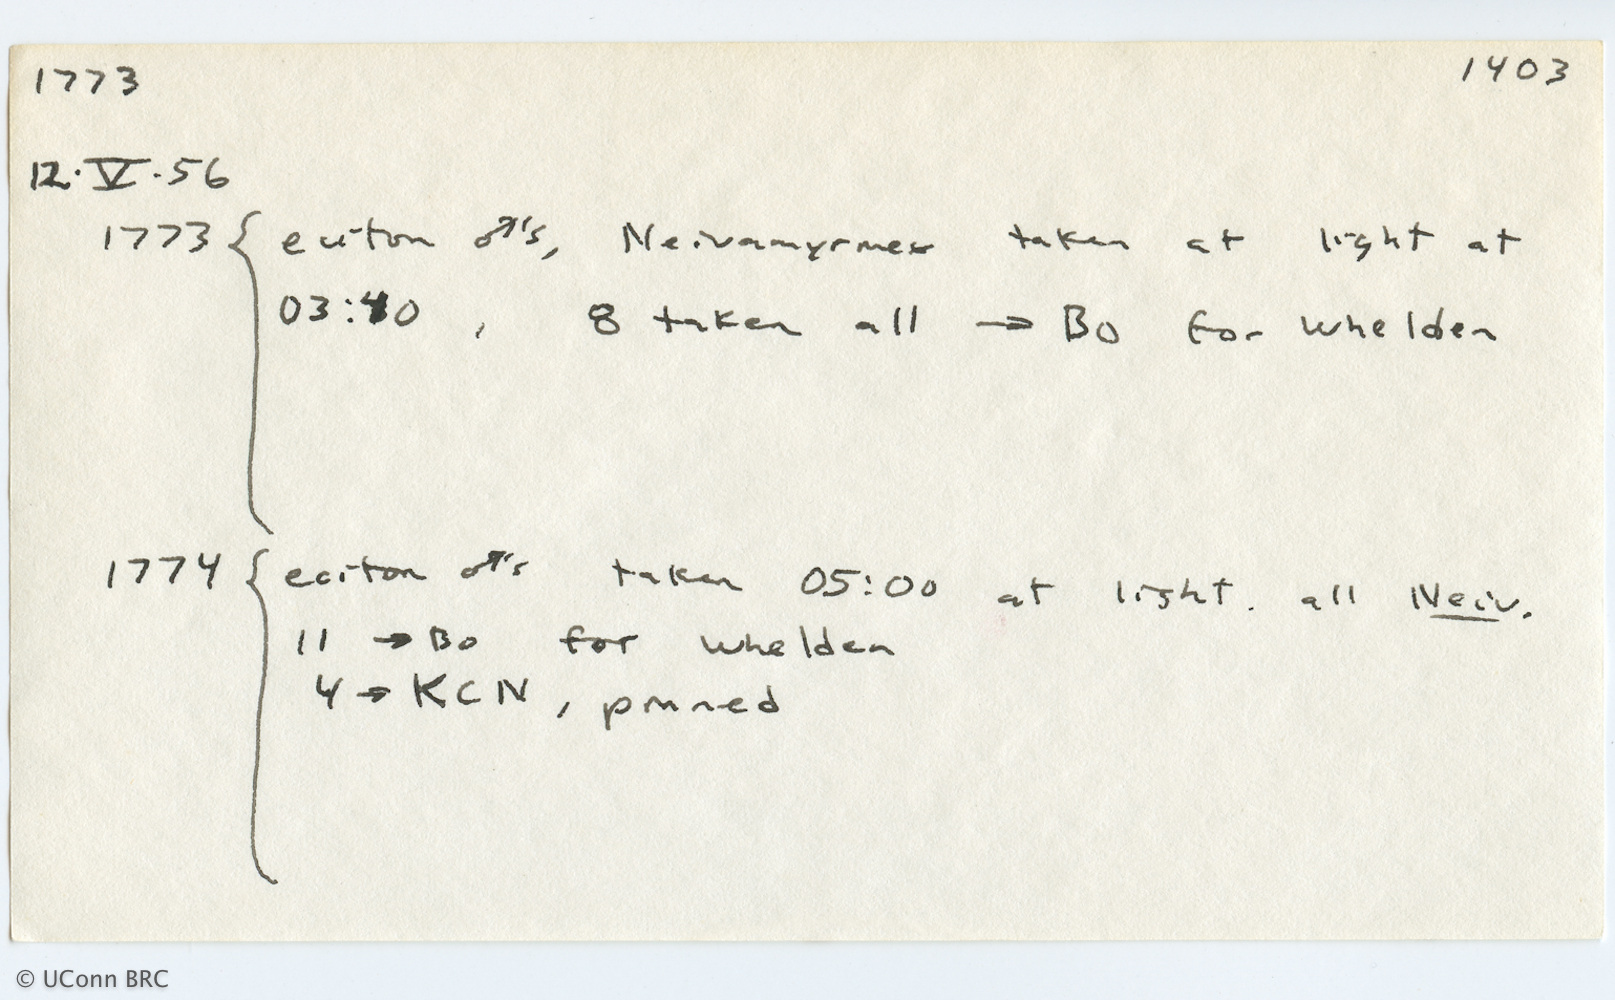 1773 1403
12·V·56
1773 { eciton ♂'s, Neivamyrmex taken at light at
03:40, 8 taken all → Bo for Whelden
1774 { eciton ♂'s taken 05:00 at light. all Neiv.
11 → Bo for Whelden
4 → KCN, pinned
© UConn BRC